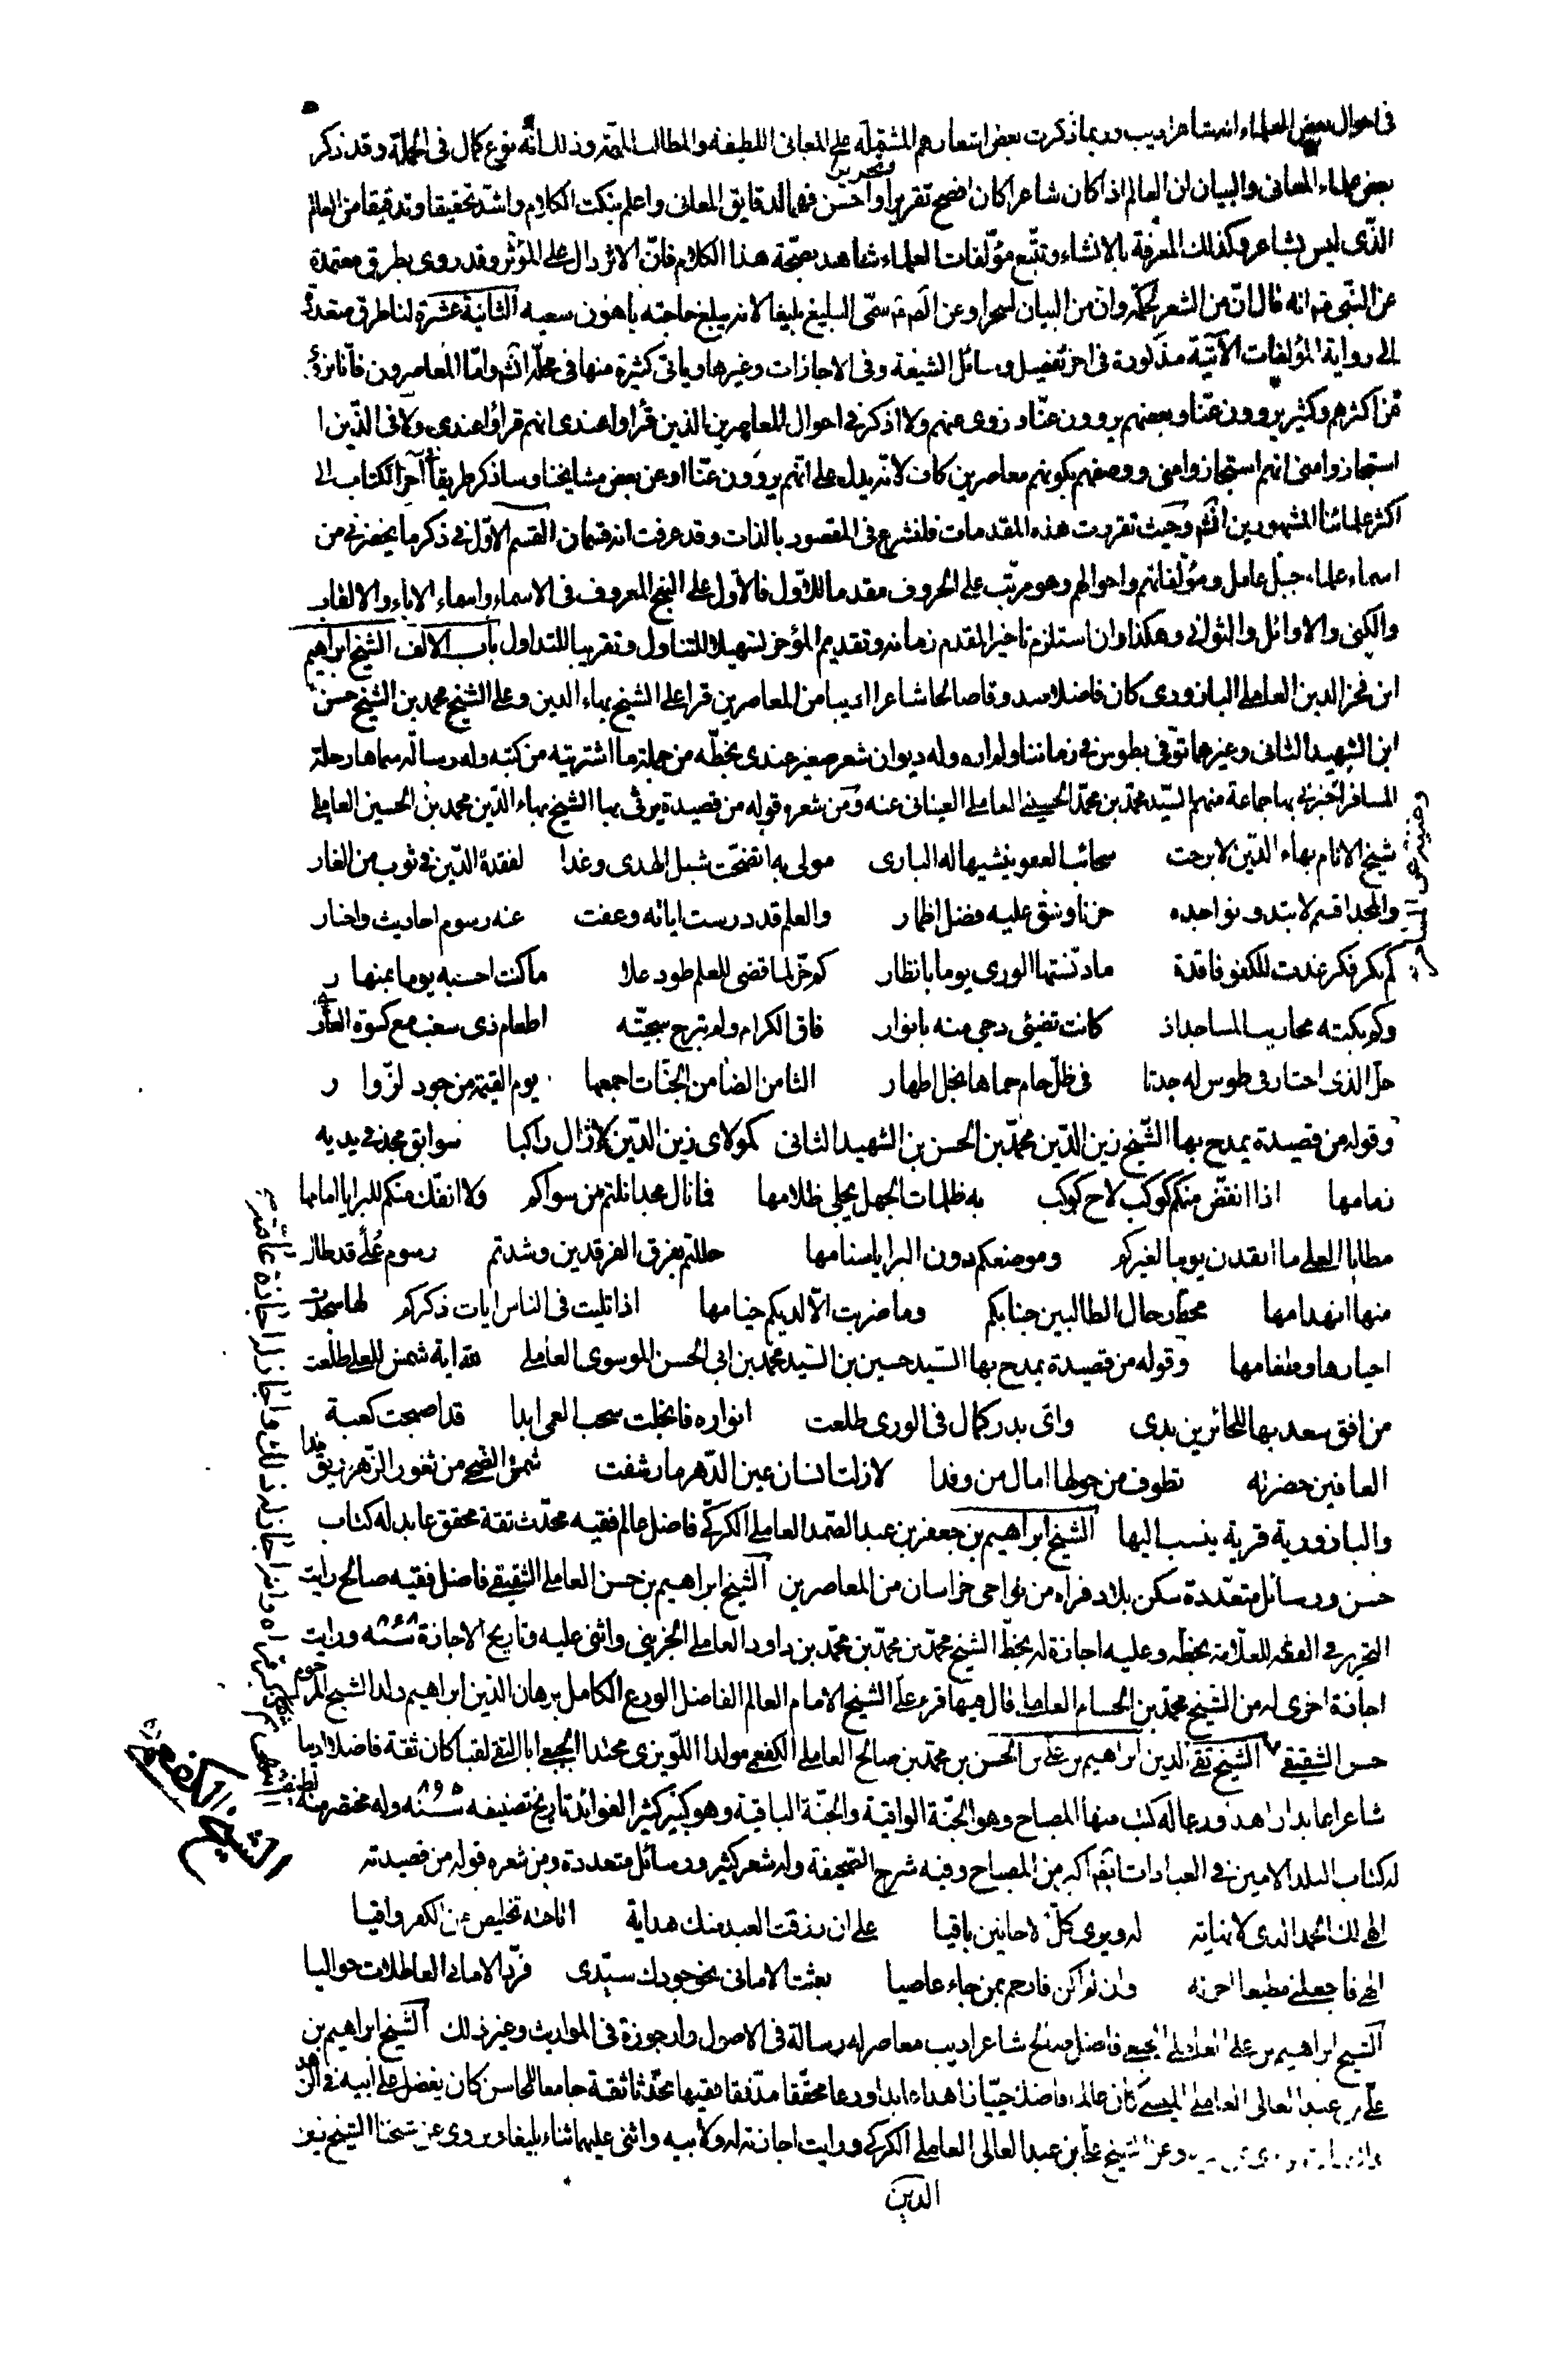 في احوال بعض العلماء انه شاعر اديب وربما ذكرت بعض اشعارهم المشتملة على المعاني اللطيفة والمطالب المهمة وذلك لانه نوع كمال في الجملة وقد ذكر
بعض علماء المعاني والبيان ان العالم اذا كان شاعرا كان افصح تقريرا وتحريرا واحسن فهما لدقايق المعاني واعلم بنكت الكلام واشد تحقيقا وتدقيقا من العالم
الذي ليس بشاعر وكذلك المعرفة بالانشاء وتتبع مؤلفات العلماء شاهد بصحة هذا الكلام فان الاثر دال على المؤثر وقد روى بطرق معتمدة
عن النبي ص انه قال ان من الشعر لحكمة وان من البيان لسحرا وعن الص ع سمى البليغ بليغا لانه يبلغ حاجته باهون سعيه الثانية عشرة لنا طرق متعددة
الى رواية المؤلفات الآتية مذكورة في اخر تفصيل وسائل الشيعة وفي الاجازات وغيرها وياتي كثيرة منها في محله انشم واما المعاصرون فانا نروي
عن اكثرهم وكثير يروون عنا وبعضهم يروون عنا ونروى عنهم ولا اذكر في احوال المعاصرين الذين قرأوا عندي انهم قرأوا عندي ولا في الذين ا
استجازوا منى انهم استجازوا مني ووصفهم بكونهم معاصرين كاف لانه يدل على انهم يروون عنا او عن بعض مشايخنا وساذكر طريقا في آخر الكتاب الى
اكثر علمائنا المشهورين انشم وحيث تقررت هذه المقدمات فلنشرع في المقصود بالذات وقد عرفت انه قسمان القسم الاول في ذكر ما يحضرني من
اسماء علماء جبل عامل ومؤلفاتهم واحوالهم وهو مرتب على الحروف مقدما للاول فالاول على النهج المعروف في الاسماء واسماء الاباء والالقاب
والكنى والاوائل والثواني وهكذا وان استلزم تاخير المقدم زمانه وتقديم المؤخر تسهيلا للتناول وتقريبا للتداول باب الالف الشيخ ابراهيم
ابن فخر الدين العاملي البازوري كان فاضلا صدوقا صالحا شاعرا اديبا من المعاصرين قرا على الشيخ بهاء الدين وعلى الشيخ محمد بن الشيخ حسن
ابن الشهيد الثاني وغيرهما توفى بطوس في زماننا ولم اره وله ديوان شعر صغير عندي بخطه من جملة ما اشتريته من كتبه وله رسالة سماها رحلة
المسافر اخبرني بها جماعة منهم السيد محمد بن محمد الحسيني العاملي العيناثي عنه ومن شعره قوله من قصيدة يرثى بها الشيخ بهاء الدين محمد بن الحسين العاملي
شيخ الانام بهاء الدين لا برحت سحائب العفو ينشيها له الباري مولى به اتضحت سبل الهدى وغدا لفقده الدين في ثوب من القار
والمجد اقسم لا تبدو نواجده حزنا وشق عليه فضل اطمار والعلم قد درست اياته وعفت عنه رسوم احاديث واخبار
كم بكر فكر غدت للكفو فاقدة ما دنستها الورى يوما بانظار كم خر لما قضى للعلم طود علا ما كنت احسبه يوما بمنهار
وكم بكته محاريب المساجد اذ كانت تضيئ دجى منه بانوار فاق الكرام ولم تبرح سجيته اطعام ذي سغب مع كسوة العاري
جل الذي اختار في طوس له جدثا في ظل حام حماها نجل اطهار الثامن الضامن الجنات اجمعها يوم القيمة من جود لزوار
وقوله من قصيدة يمدح بها الشيخ زين الدين محمد بن الحسن بن الشهيد الثاني كمولاي زين الدين لا زال راكبا سوابق مجد في يديه
زمامها اذا انقض منكم كوكب لاح كوكب به ظلمات الجهل يجلى ظلامها فما نال مجدا نلتم من سواكم ولا انفك منكم للبرايا امامها
مطايا العلى ما انقدن يوما لغيركم وموضعكم دون البرايا سنامها حللتم بفرق الفرقدين وشدتم رسوم علىً قد طال
منها انهدامها محط رحال الطالبين جنابكم وما ضربت الا لديكم خيامها اذا تليت في الناس ايات ذكركم لها سجدت
احبارها وطغامها وقوله من قصيدة يمدح بها السيد حسين بن السيد محمد بن ابي الحسن الموسوي العاملي لله اية شمس للعلى طلعت
من افق سعد بها للحائرين بدى واى بدر كمال في الورى طلعت انواره فانجلت سحب العمى ابدا قد اصبحت كعبة
العافين حضرته تطوف من حولها امال من وفدا لا زلت انسان عين الدهر ما رشفت شمس الضحى من ثغور الزهر ريق ندا
والبازورية قرية ينسب اليها الشيخ ابراهيم بن جعفر بن عبد الصمد العاملي الكركي فاضل عالم فقيه محدث ثقة محقق عابد له كتاب
حسن ورسائل متعددة سكن بلاد فراه من نواحي خراسان من المعاصرين الشيخ ابراهيم بن حسن العاملي الشقيفي فاضل فقيه صالح رايت
التحرير في الفقه للعلامة بخطه وعليه اجازة له بخط الشيخ محمد بن محمد بن محمد بن داود العاملي الجزيني واثنى عليه وتاريخ الاجازة سنة ٨٦٨ ورايت
اجازة اخرى له من الشيخ محمد بن الحسام العاملي قال فيها قرء على الشيخ الامام العالم الفاضل الورع الكامل برهان الدين ابراهيم ولد الشيخ المرحوم
حسن الشقيفي الشيخ تقي الدين ابراهيم بن علي بن الحسن بن محمد بن صالح العاملي الكفعمي مولدا اللويزي محتدا الجبعي ابا التقي لقبا كان ثقة فاضلا اديبا
شاعرا عابدا زاهدا ورعا له كتب منها المصباح وهو الجنة الواقية والجنة الباقية وهو كبير كثير الفوائد تاريخ تصنيفه سنة ٨٩٥ وله مختصر منه
له كتاب البلد الامين في العبادات ايضم اكبر من المصباح وفيه شرح الصحيفة وله شعر كثير ورسائل متعددة ومن شعره قوله من قصيدته
الهي لك الحمد الذي لا نهاية له ويرى كل الاحايين باقيا على ان رزقت العبد منك هداية اتاحته تخليص من الكفر واقيا
الهي فاجعلني مطيعا اجرته وان لم اكن فارحم بمن جاء عاصيا بعثت الاماني نحو جودك سيدي فرد الاماني العاطلات حواليا
الشيخ ابراهيم بن علي العاملي الجبعي فاضل صالح شاعر اديب معاصر له رسالة في الاصول وارجوزة في المواريث وغير ذلك الشيخ ابراهيم بن
علي بن عبد العالي العاملي الميسي كان عالما فاضلا جيا زاهدا عابدا ورعا محققا مدققا فقيها محدثا ثقة جامعا للمحاسن كان يفضل على ابيه في الزهد
وعن الشيخ علي بن عبد العالي العاملي الكركي ورايت اجازته له ولابيه واثنى عليهما ثناء بليغا ويروى عن شيخنا الشيخ زين
الدين
الشيخ الكفعمي